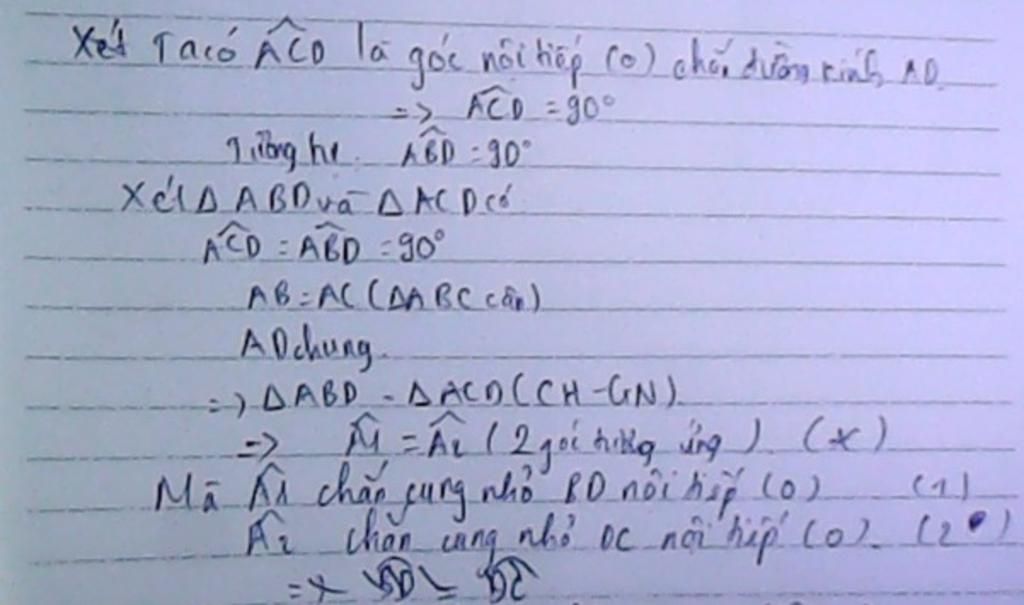 Xét Ta có ACD là góc nội tiếp (O) chắn đường kính AD.
=> ACD = 90°
Tương tự. ABD = 90°
Xét Δ ABD và Δ ACD có
ACD = ABD = 90°
AB = AC (ΔABC cân)
AD chung.
=> Δ ABD = Δ ACD (CH-GN)
=> A1 = A2 (2 góc tương ứng). (*)
Mà A1 chắn cung nhỏ BD nội tiếp (O) (1)
A2 chắn cung nhỏ DC nội tiếp (O). (2)
=> BD = DC